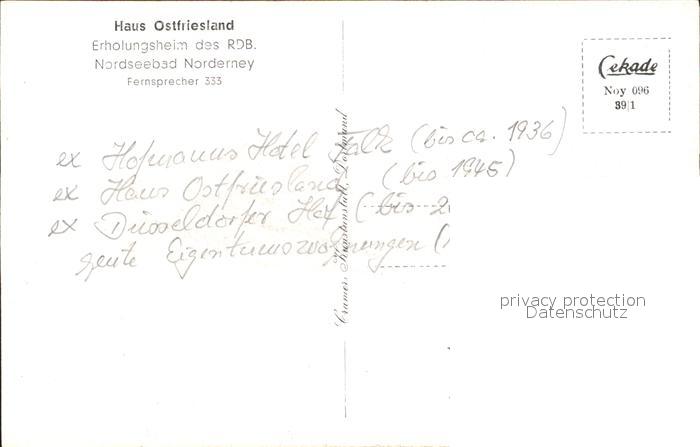 Haus Ostfriesland
Erholungsheim des RDB.
Nordseebad Norderney
Fernsprecher 333
Cekade
Noy 096
39|1
ex Hofmanns Hotel Falk (bis ca. 1936)
ex Haus Ostfriesland (bis 1945)
ex Düsseldorfer Hof (bis 2
Eigentumswohnungen (
Cramers Kunstanstalt, Dortmund
privacy protection
Datenschutz